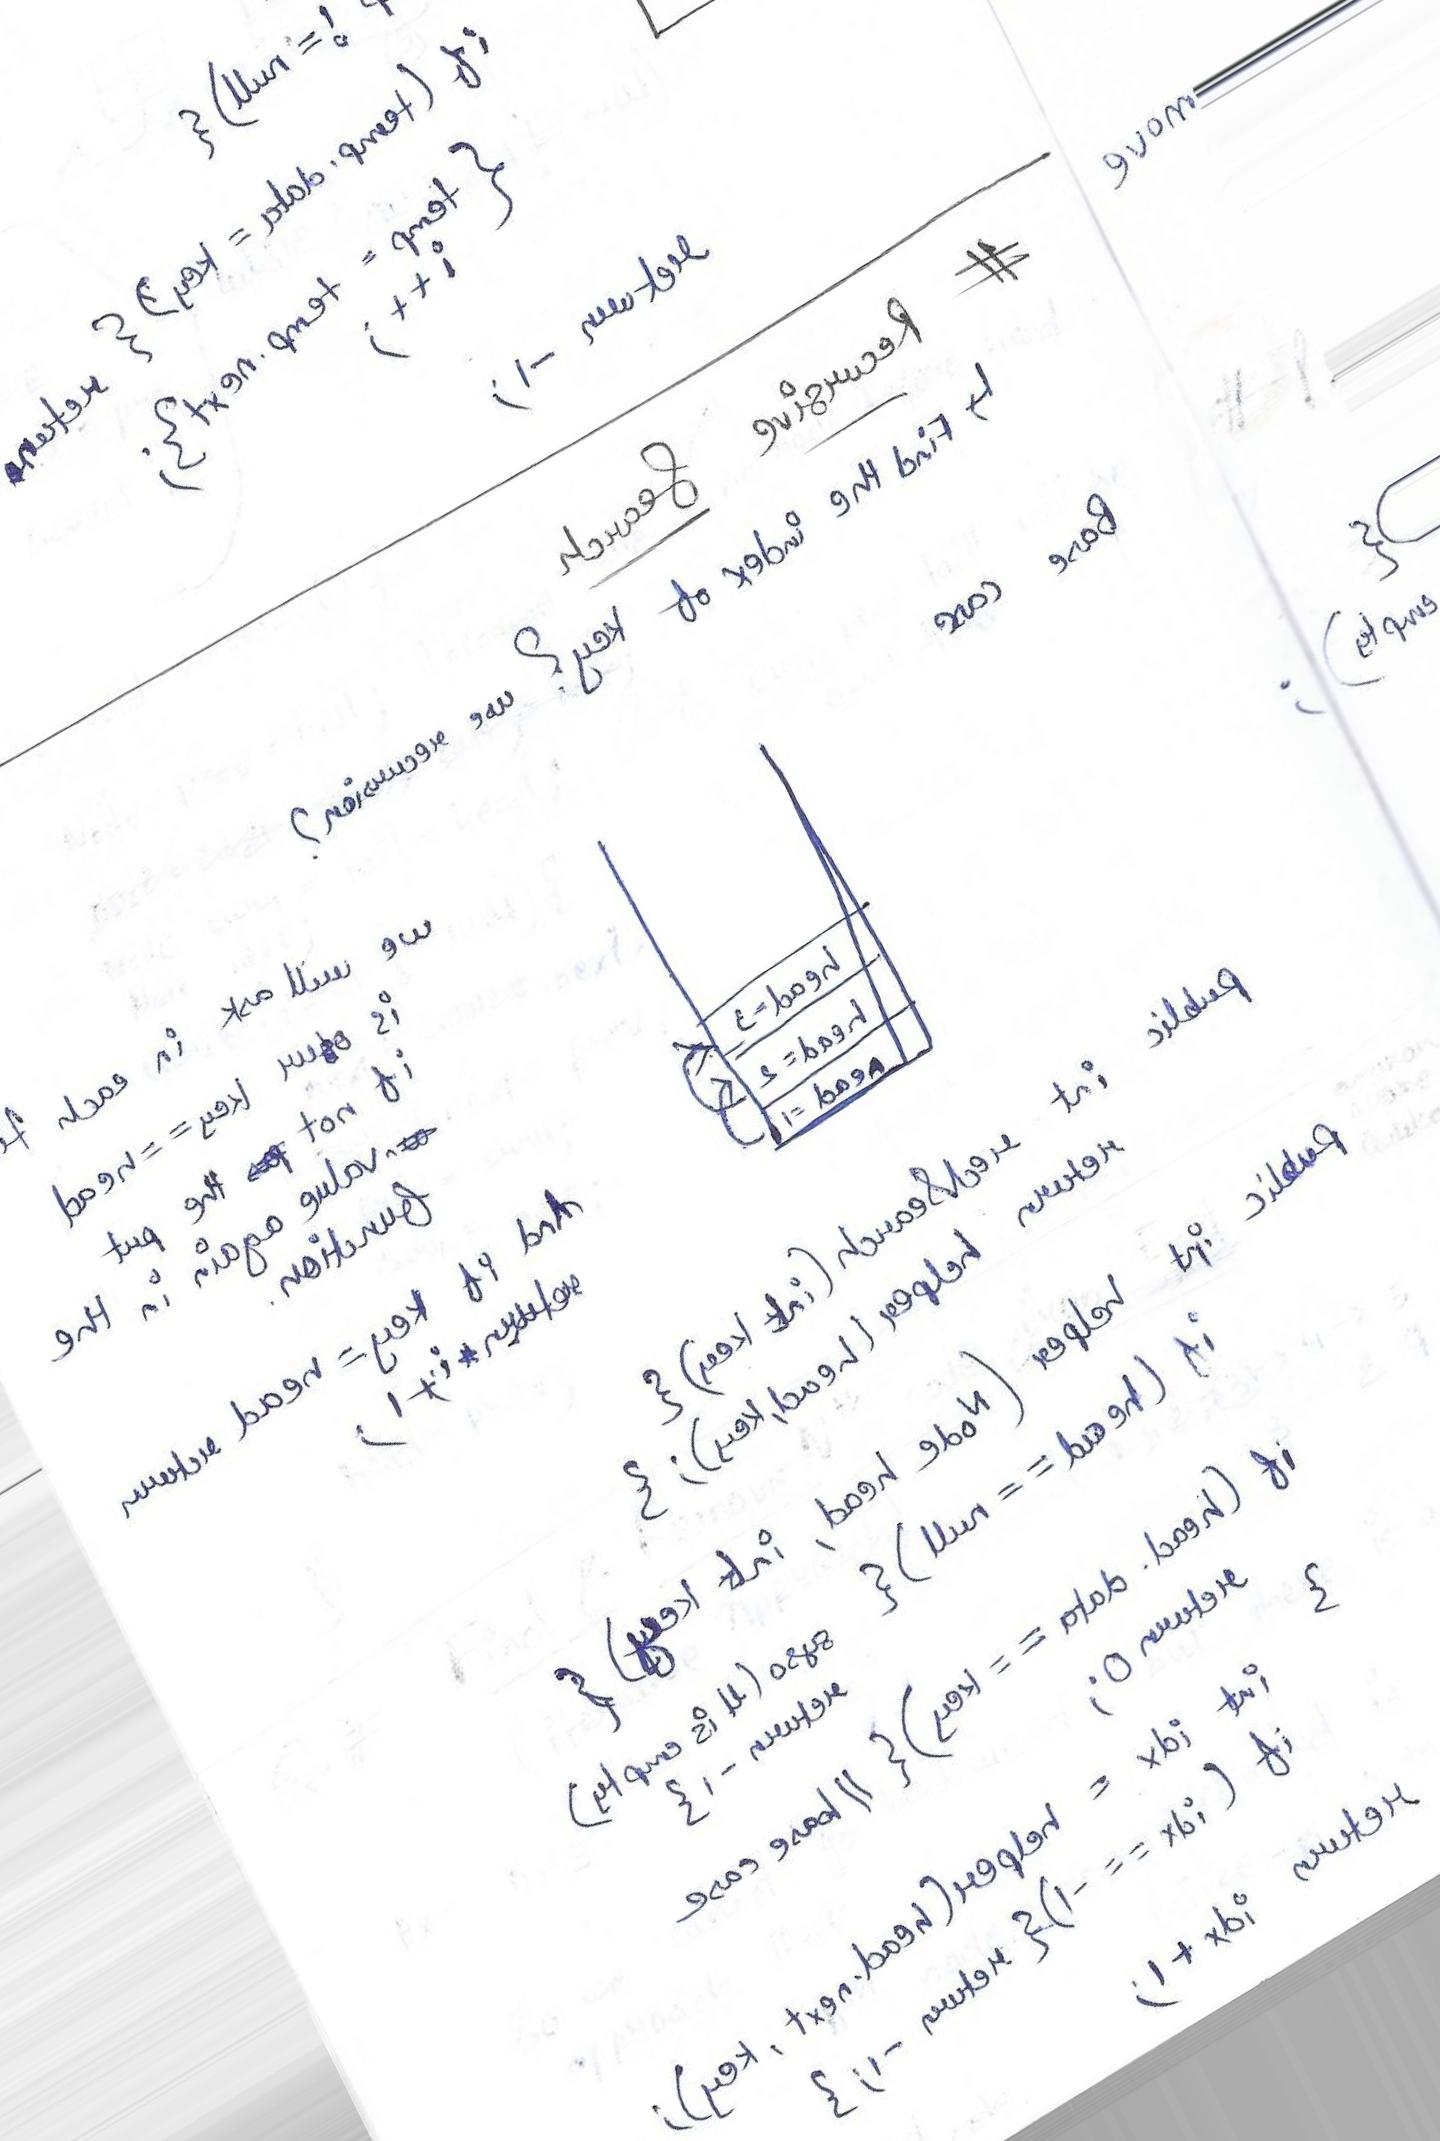 != null){
if (temp.data = key){ return
temp = temp.next;
i++; }
}
return -1;
# Recursive Search
find the index of key? use recursion?
Base case
we will ask in each
is our key == head
if not the put
value again in the
function.
head=3
head=2
head=1
And if key = head return
return i+1;
public int recSearch(int key){
return helper(head, key); }
public int helper (Node head, int key) {
if (head == null){
(ll is empty)
return -1 }
if (head.data == key){ // base case
return 0;
}
int idx = helper(head.next, key);
if (idx == -1){ return -1; }
return idx + 1;
move
#
}
empty)
;